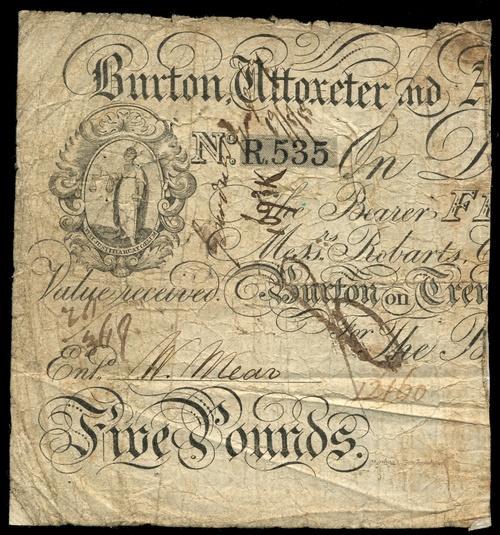 Burton, Uttoxeter and A
No. R.535 On D
the Bearer, F
Messrs. Robarts, C
Value received. Burton on Tren
for The B
Entd. W. Mear
12460
Five Pounds.